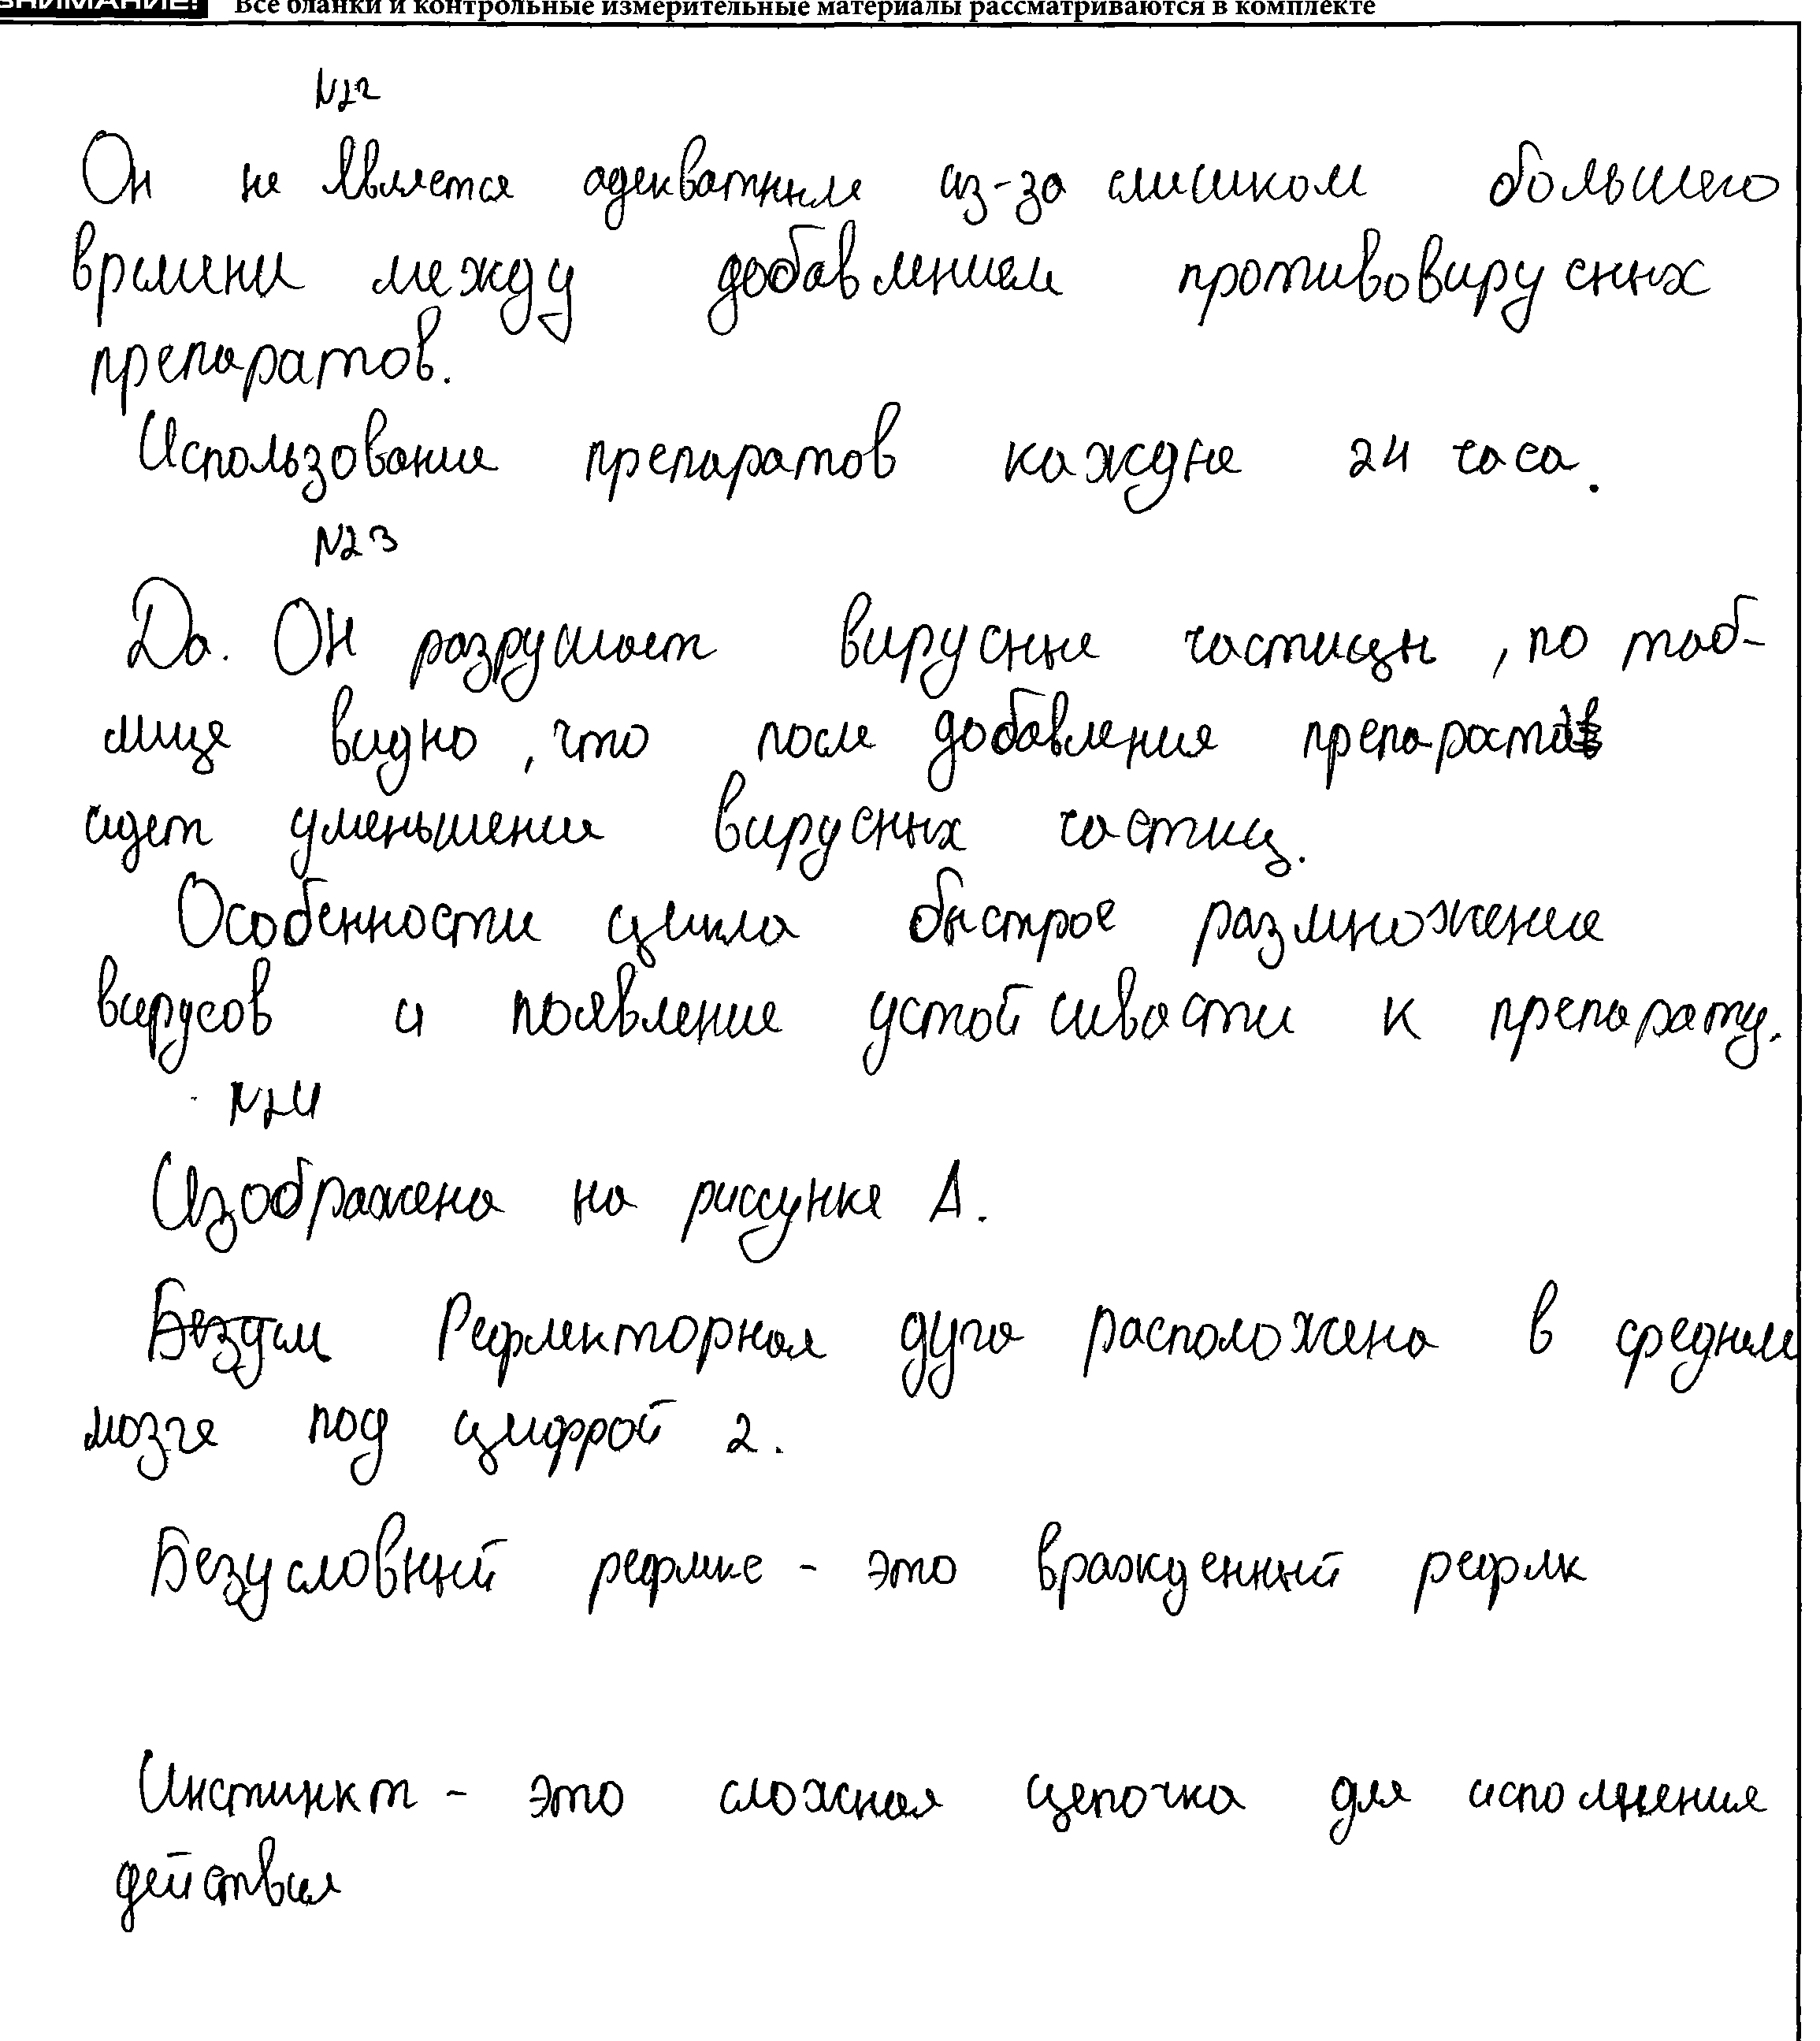 ВНИМАНИЕ! Все бланки и контрольные измерительные материалы рассматриваются в комплекте
N22
Он не является адекватным из-за слишком большего
времени между добавлением противовирусных
препаратов.
Использование препаратов каждые 24 часа.
N23
Да. Он разрушает вирусные частицы, по таб-
лице видно, что после добавления препаратов
идет уменьшение вирусных частиц.
Особенности цикла быстрое размножение
вирусов и появление устойчивости к препарату.
N24
Изображена на рисунке А.
Рефлекторная дуга расположена в среднем
мозге под цифрой 2.
Безусловный рефлекс - это врожденный рефлк
Инстинкт - это сложная цепочка для исполнения
действия